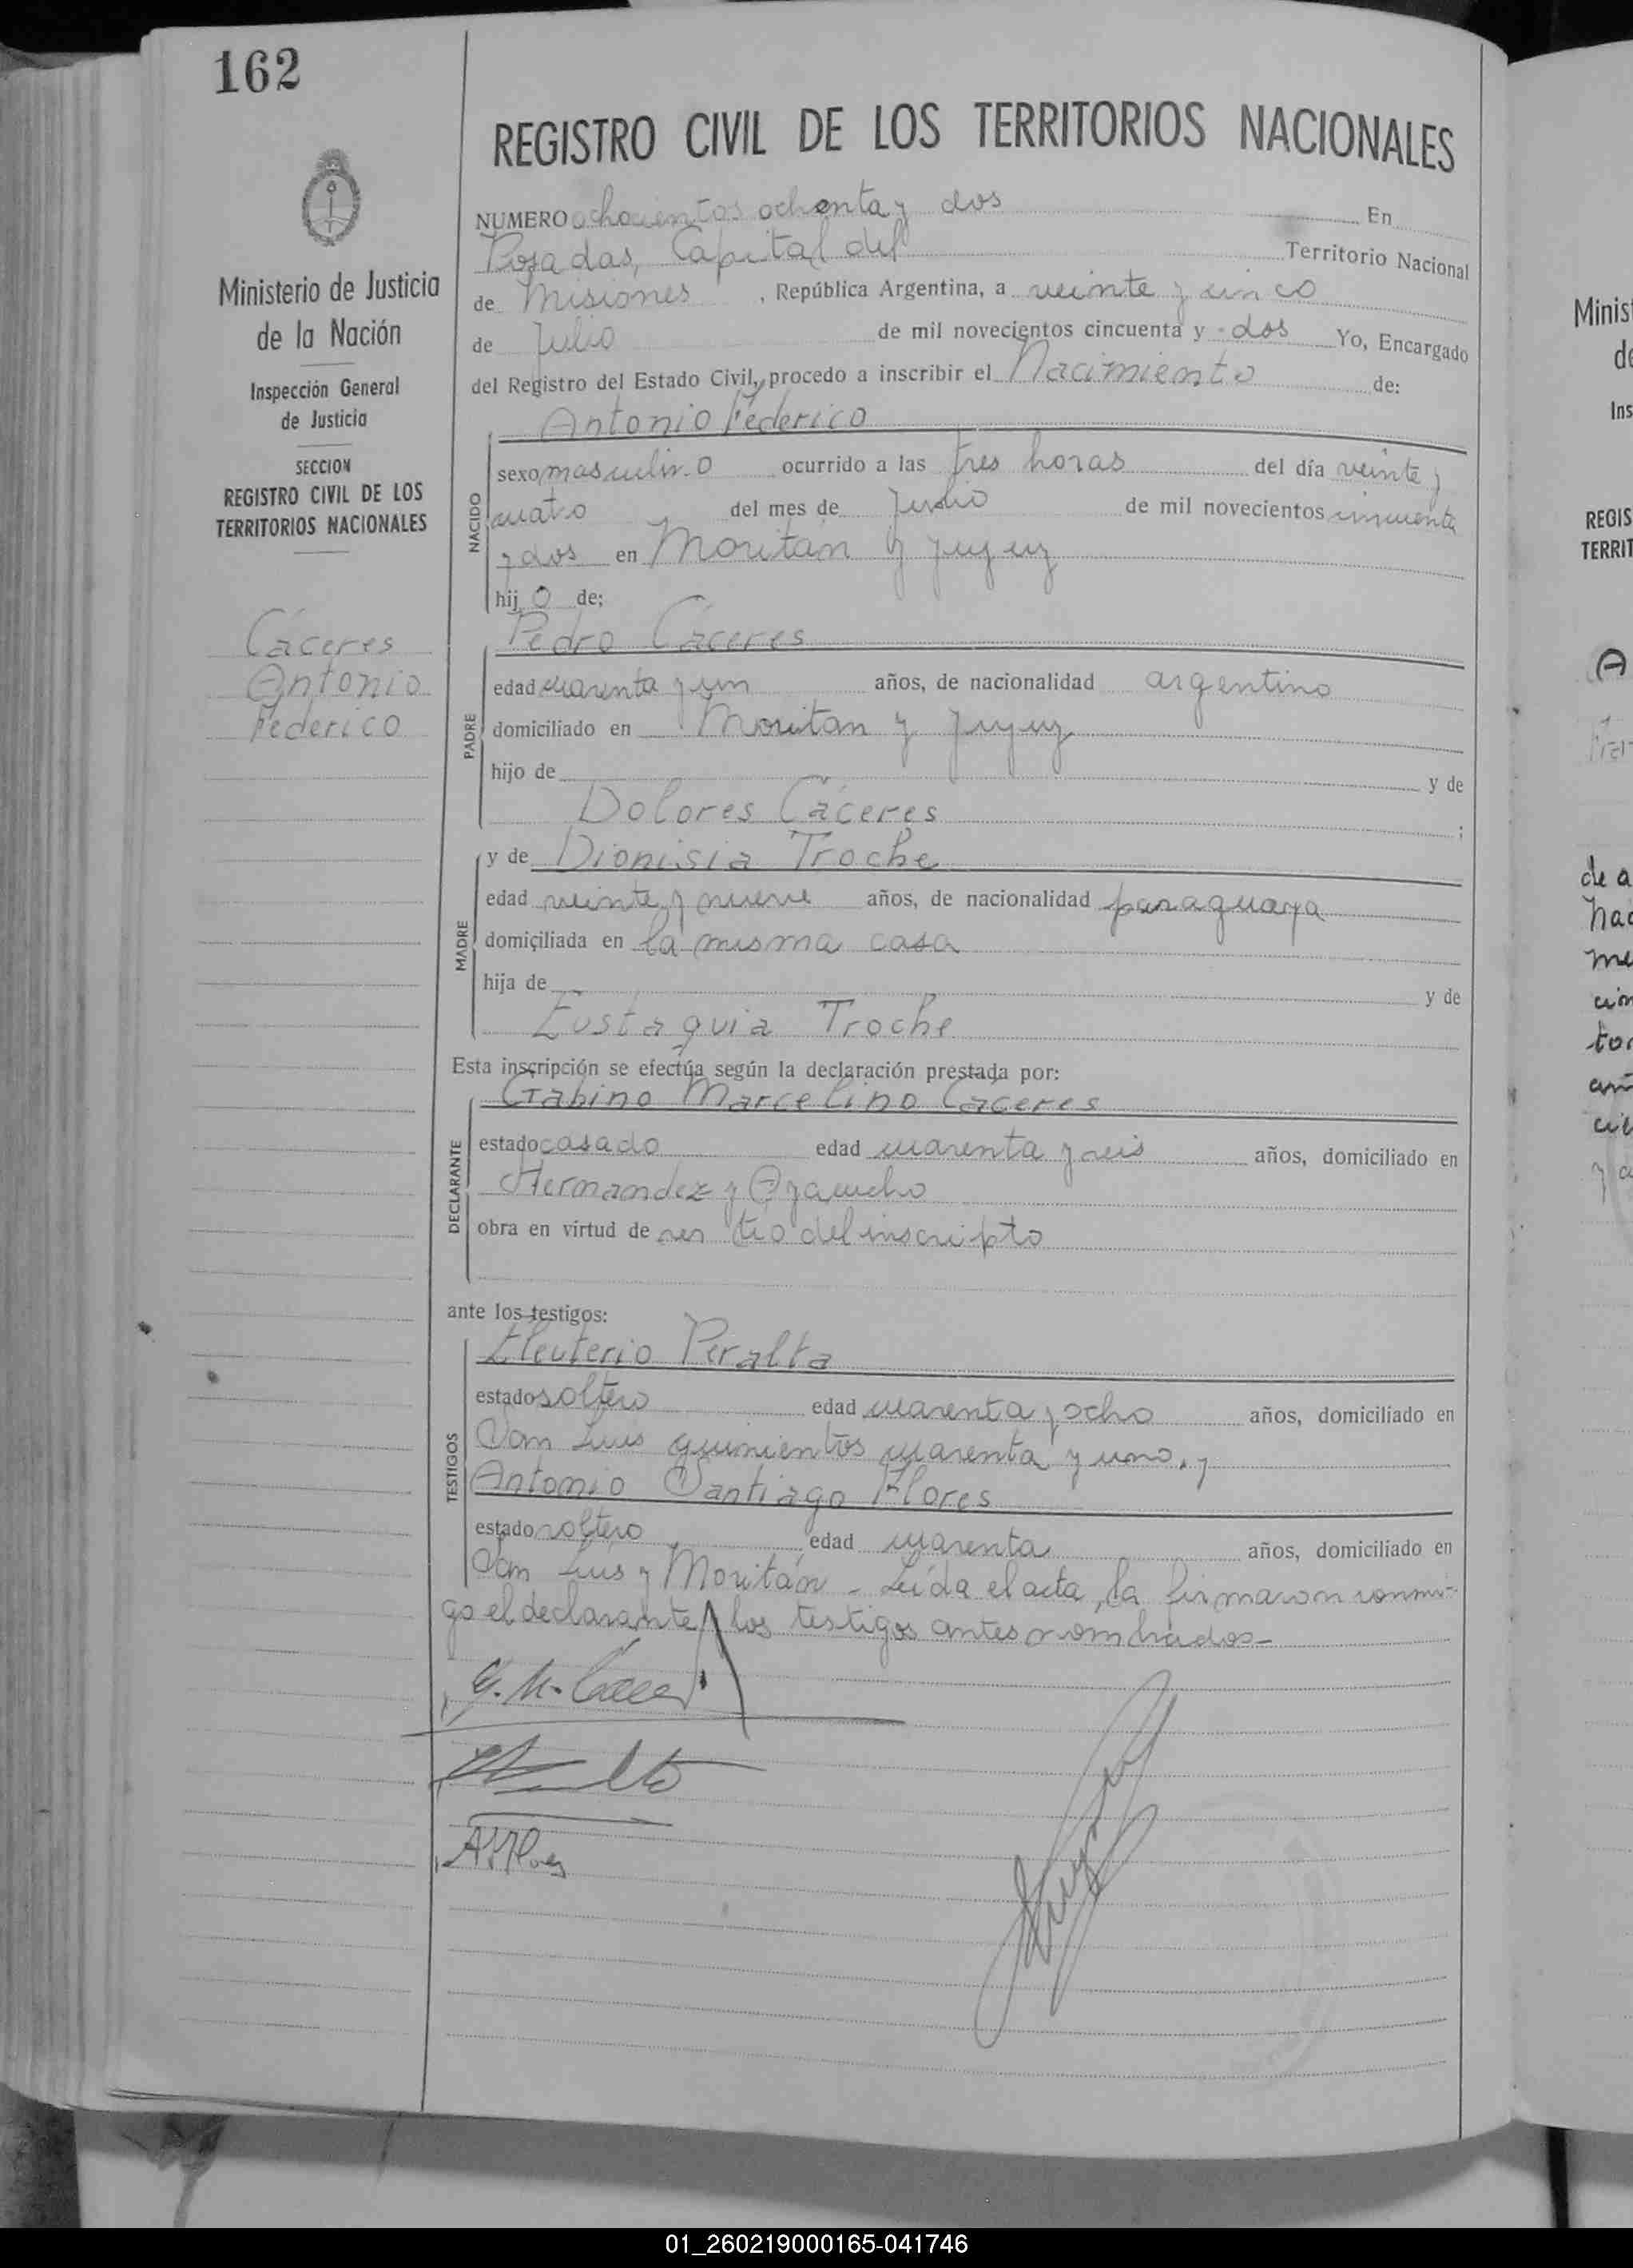 162
REGISTRO CIVIL DE LOS TERRITORIOS NACIONALES
Ministerio de Justicia
de la Nación
Inspección General
de Justicia
SECCION
REGISTRO CIVIL DE LOS
TERRITORIOS NACIONALES
Cáceres
Antonio
Federico
NUMERO ochocientos ochenta y dos En
Posadas, Capital del Territorio Nacional
de Misiones, República Argentina, a veinte y cinco
de Julio de mil novecientos cincuenta y dos Yo, Encargado
del Registro del Estado Civil, procedo a inscribir el Nacimiento de:
Antonio Federico
NACIDO
sexo masculino ocurrido a las tres horas del día veinte y
cuatro del mes de Junio de mil novecientos cincuenta
y dos en Moritan y Jujuy
hijo de;
Pedro Cáceres
PADRE
edad cuarenta y un años, de nacionalidad argentino
domiciliado en Moritan y Jujuy
hijo de y de
Dolores Cáceres ;
y de Dionisia Troche
MADRE
edad veinte y nueve años, de nacionalidad paraguaya
domiciliada en la misma casa
hija de y de
Eustaquia Troche
Esta inscripción se efectúa según la declaración prestada por:
Gabino Marcelino Cáceres
DECLARANTE
estado casado edad cuarenta y seis años, domiciliado en
Hernandez y Ayacucho
obra en virtud de ser tio del inscripto
ante los testigos:
Eleuterio Peralta
TESTIGOS
estado soltero edad cuarenta y ocho años, domiciliado en
San Luis quinientos cuarenta y uno, y
Antonio Santiago Flores
estado soltero edad cuarenta años, domiciliado en
San Luis y Moritán - Leída el acta, la firmaron conmi-
go el declarante y los testigos antes nombrados-
G. M. Cáceres
Minist
de
Ins
REGIS
TERRIT
A
de a
nac
me
cin
tor
01_260219000165-041746